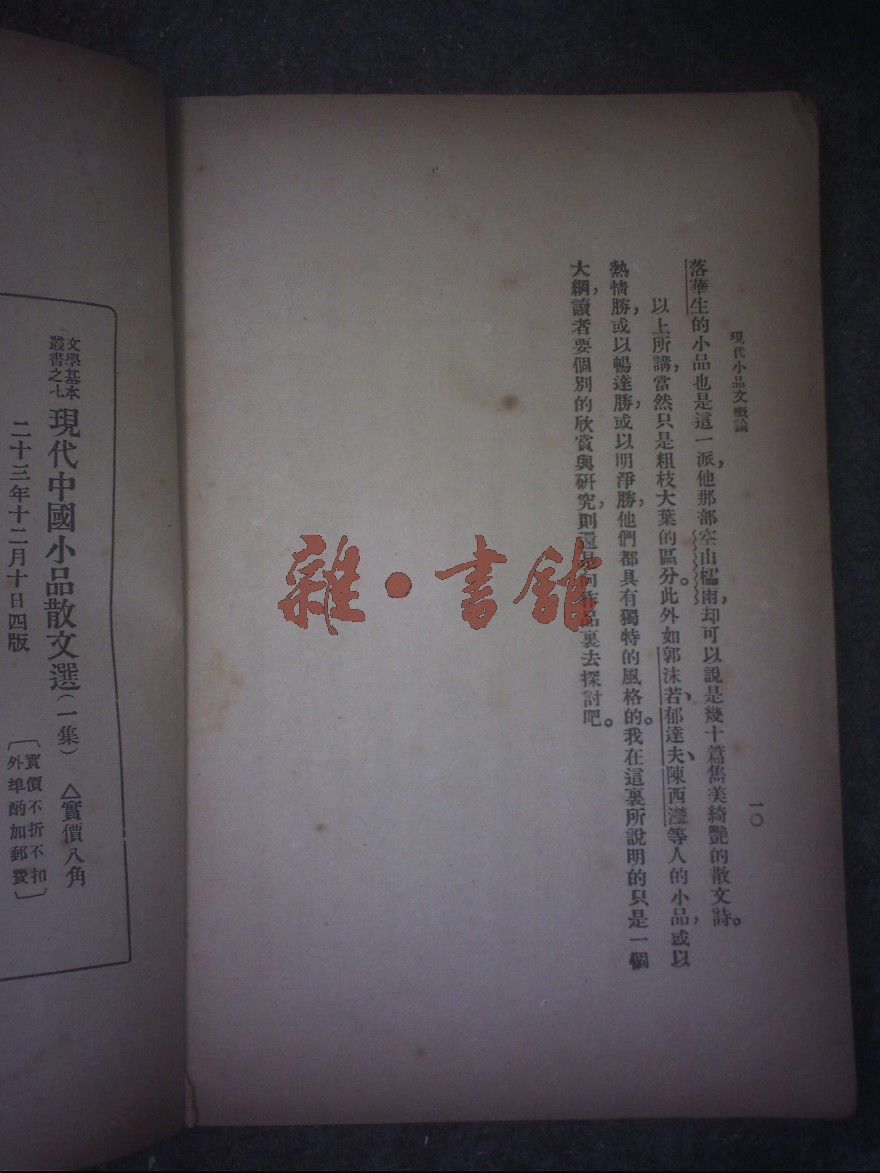 現代小品文概論
一〇
落華生的小品也是這一派，他那部空山櫺雨，却可以說是幾十篇雋美綺艷的散文詩。
以上所講，當然只是粗枝大葉的區分。此外如郭沫若、郁達夫、陳西瀅等人的小品，或以
熱情勝，或以暢達勝，或以明淨勝，他們都具有獨特的風格的。我在這裏所說明的只是一個
大綱，讀者要個別的欣賞與研究，則還是向作品裏去探討吧。
雜·書館
文學基本
叢書之七
現代中國小品散文選（一集） △實價八角
二十三年十二月十日四版
〔實價不折不扣
外埠酌加郵費〕